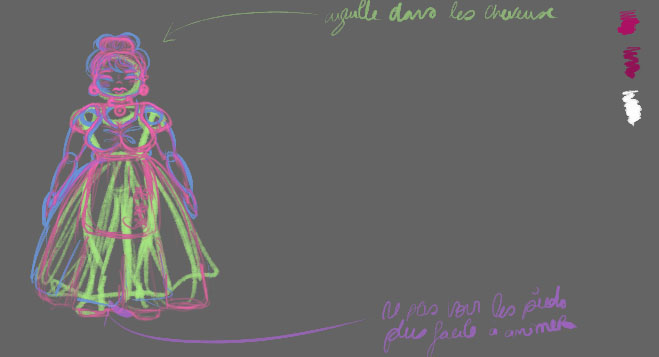 aiguille dans les cheveuse
ne pas voir les pieds
plus facile a animer